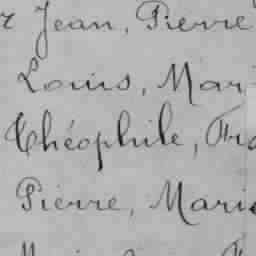 Jean, Pierre
Louis, Mar
Théophile, Fra
Pierre, Marie